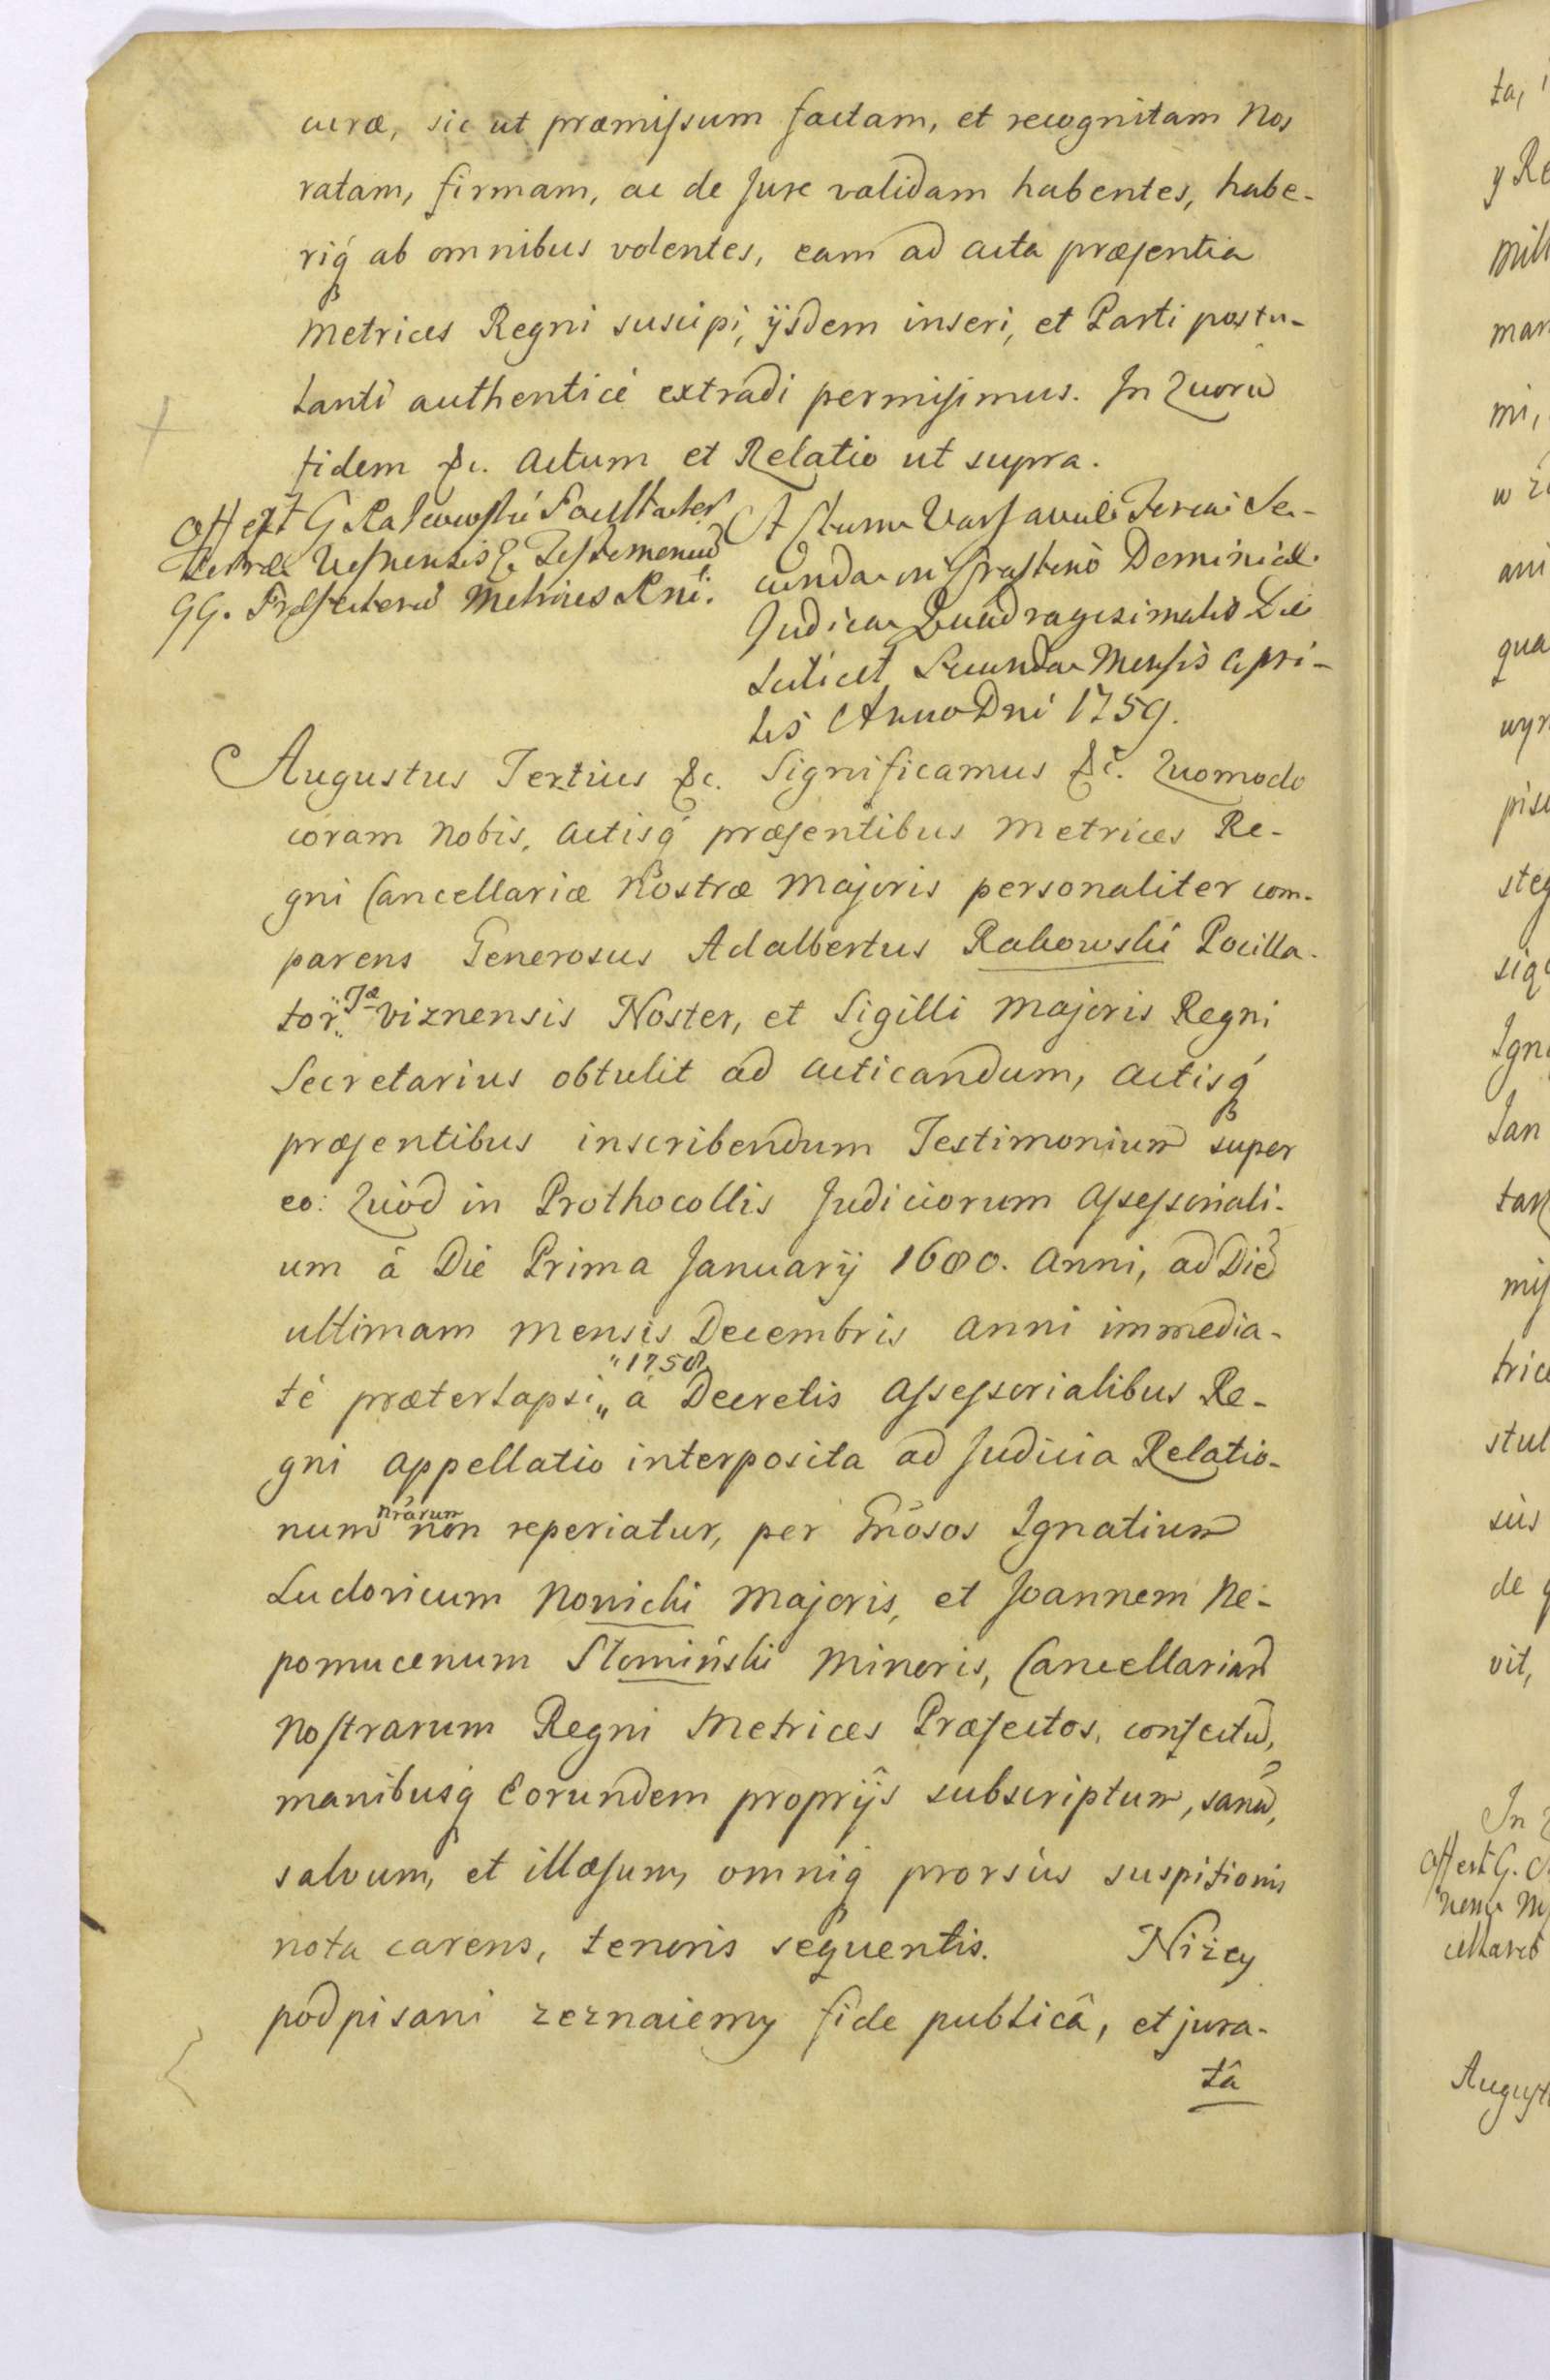 curæ, sic ut præmissum factam, et recognitam Nos
ratam, firmam, ac de Jure validam habentes, habe-
riq́ ab omnibus volentes, eam ad acta præsentia
Metrices Regni suscipi, ijsdem inseri, et Parti postu-
lanti authenticè extradi permisimus. In Quorũ
fidem &c. Actum et Relatio ut supra.
Offert G Rakowski
Terræ Viznensis
GG. Præfectorũ Metrices Rni.
Actum Varsaviæ Feria Se-
cunda in Crastino Dominicæ
Judica Quadragesimalis Die
scilicet Secunda Mensis Apri-
lis Anno Dni 1759.
Augustus Tertius &c. Significamus &c. Quomodo
coram Nobis, Actisq́ præsentibus Metrices Re-
gni Cancellariæ Nostræ Majoris personaliter com-
parens Generosus Adalbertus Rakowski Pocilla-
tor Tæ Viznensis Noster, et Sigilli Majoris Regni
Secretarius obtulit ad acticandum, Actisq́
præsentibus inscribendum Testimonium super
eo: Quòd in Prothocollis Judiciorum Assessoriali-
um á Die Prima Januarij 1680. Anni, ad Diẽ
ultimam Mensis Decembris Anni immedia-
tè præterlapsi, 1758 á Decretis Assessorialibus Re-
gni Appellatio interposita ad Judicia Relatio-
num nrarum non reperiatur, per Gnosos Ignatium
Ludovicum Nowicki Majoris, et Joannem Ne-
pomucenum Słomiński Minoris, Cancellariarũ
Nostrarum Regni Metrices Præfectos, confectũ,
manibusq́ Eorundem proprijs subscriptum, sanũ,
salvum, et illæsum, omniq́ prorsùs suspitionis
nota carens, tenoris sequentis. Niżey
podpisani zeznaiemy fide publicâ, et jura-
tâ